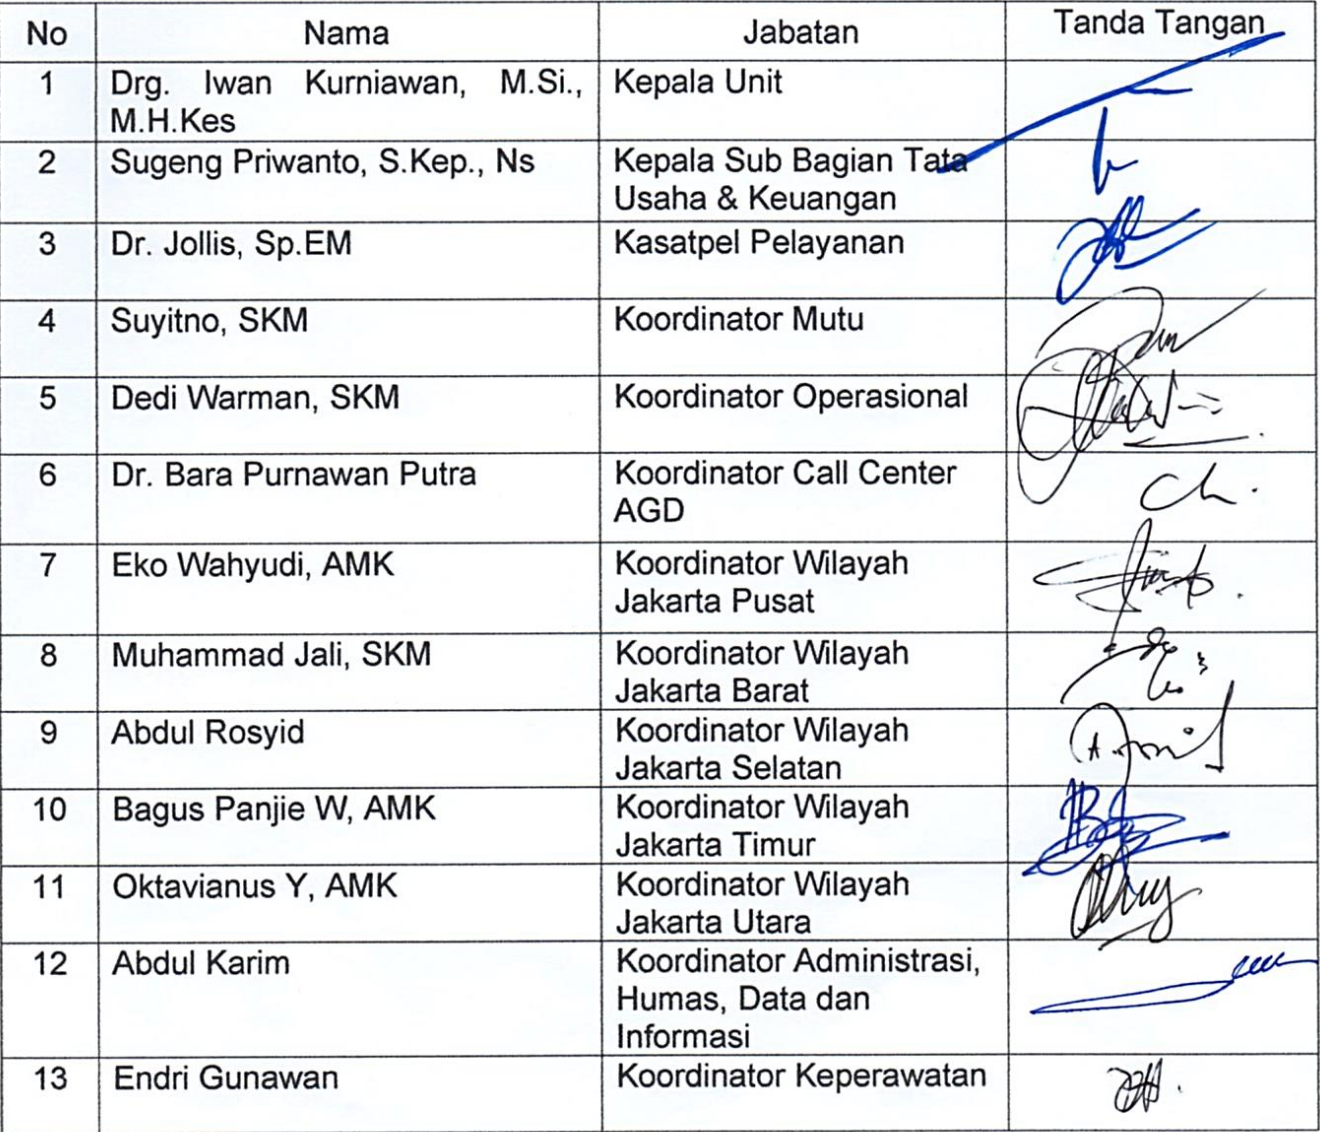 No Nama Jabatan Tanda Tangan
1 Drg. Iwan Kurniawan, M.Si., Kepala Unit
M.H.Kes
2 Sugeng Priwanto, S.Kep., Ns Kepala Sub Bagian Tata
Usaha & Keuangan
3 Dr. Jollis, Sp.EM Kasatpel Pelayanan
4 Suyitno, SKM Koordinator Mutu
5 Dedi Warman, SKM Koordinator Operasional
6 Dr. Bara Purnawan Putra Koordinator Call Center
AGD
7 Eko Wahyudi, AMK Koordinator Wilayah
Jakarta Pusat
8 Muhammad Jali, SKM Koordinator Wilayah
Jakarta Barat
9 Abdul Rosyid Koordinator Wilayah
Jakarta Selatan
10 Bagus Panjie W, AMK Koordinator Wilayah
Jakarta Timur
11 Oktavianus Y, AMK Koordinator Wilayah
Jakarta Utara
12 Abdul Karim Koordinator Administrasi,
Humas, Data dan
Informasi
13 Endri Gunawan Koordinator Keperawatan